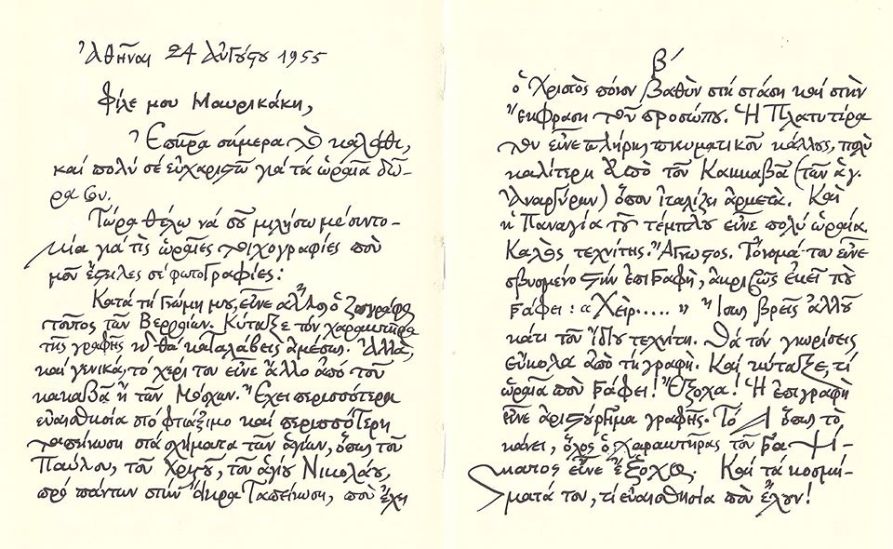 Ἀθῆναι 24 Αὐγούστου 1955
Φίλε μου Μαυρικάκη,
Ἐπῆρα σήμερα τὸ καλάθι,
καὶ πολύ σέ εὐχαριστῶ γιά τά ὡραῖα δῶ-
ρα σου.
Τώρα θέλω νά σοῦ μιλήσω μέ συντο-
μία γιά τὶς ὡραῖες τοιχογραφίες ποὺ
μοῦ ἔστειλες σέ φωτογραφίες:
Κατά τή γνώμη μου, εἶνε ἄλλος ὁ ζωγράφος
τοῦτος τῶν Βερροίων. Κύταξε τὸν χαρακτῆρα
τῆς γραφῆς κ θά καταλάβεις ἀμέσως. Ἀλλά,
καί γενικά, τό χέρι του εἶνε ἄλλο ἀπό τοῦ
κακαβᾶ ἤ τῶν Μόσχων. Ἔχει περισσότερη
εὐαισθησία στό φτιάξιμο καί περισσότερη
ταπείνωση στά σχήματα τῶν ἁγίων, ὅπως τοῦ
Παύλου, τοῦ Χριστοῦ, τοῦ ἁγίου Νικολάου,
πρό πάντων στήν Ἄκρα Ταπείνωση, ποὺ ἔχει
Β΄
ὁ Χριστὸς πόνον βαθὺν στή στάση καί στὴν
ἔκφραση τοῦ προσώπου. Ἡ Πλατυτέρα
του εἶνε πλήρης πνευματικοῦ κάλλους, πολὺ
καλίτερη ἀπὸ τοῦ Κακκαβᾶ (τῶν ἁγ.
Ἀναργύρων) ὅπου ἰταλίζει ἀρκετά. Καὶ
ἡ Παναγία τοῦ τέμπλου εἶνε πολύ ὡραία.
Καλὸς τεχνίτης. Ἄγνωστος. Τὄνομά του εἶνε
σβυσμένο στὴν ἐπιγραφὴ, ἀκριβῶς ἐκεῖ ποὺ
γράφει: «Χεὶρ.....» Ἴσως βρεῖς ἀλλοῦ
κάτι τοῦ ἴδιου τεχνίτη. Θά τόν γνωρίσεις
εὔκολα ἀπὸ τή γραφή. Καί κύταξε, τί
ὡραῖα ποὺ γράφει! Ἔξοχα! Ἡ ἐπιγραφὴ
εἶνε ἀριστούργημα γραφῆς. Τό Α ὅπως τὸ
κάνει, ὅλος ὁ χαρακτῆρας τοῦ γράμ-
ματος εἶνε ἔξοχος. Καί τά κοσμή-
ματά του, τί εὐαισθησία ποὺ ἔχουν!